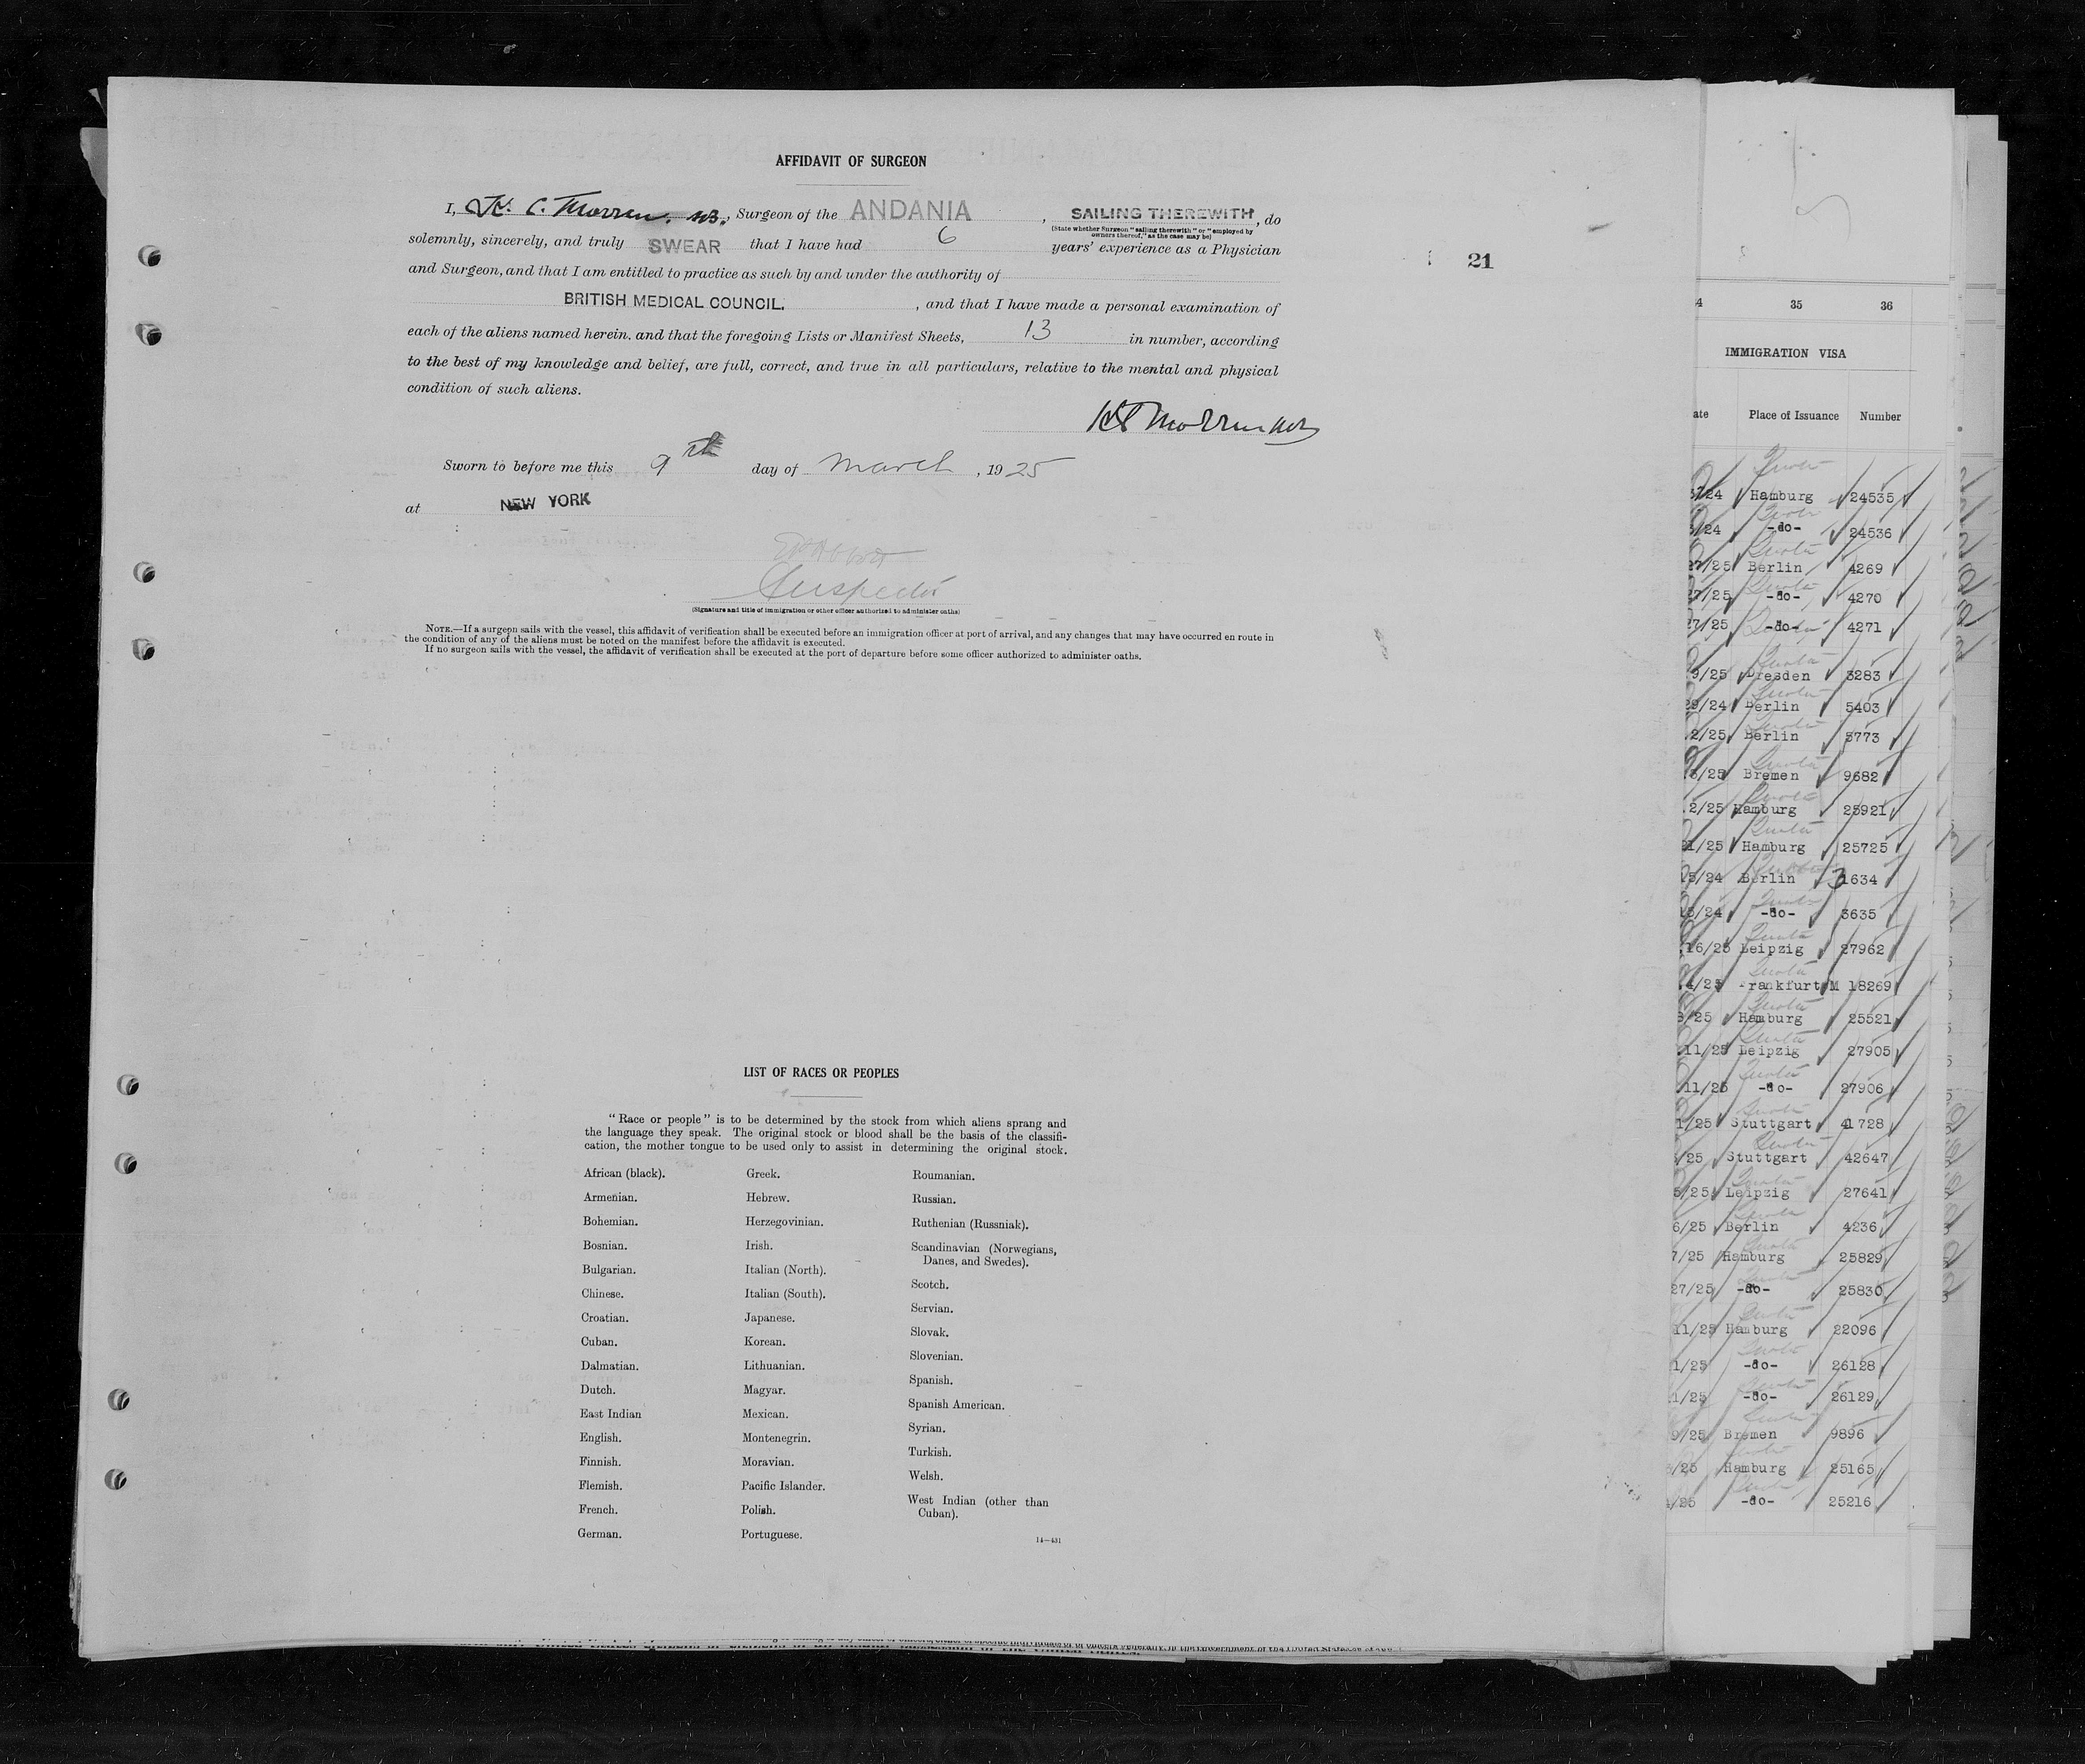 AFFIDAVIT OF SURGEON
I, K. C. Morren. MB., Surgeon of the ANDANIA, SAILING THEREWITH, do
(State whether Surgeon "sailing therewith" or "employed by
owners thereof," as the case may be)
solemnly, sincerely, and truly SWEAR that I have had 6 years' experience as a Physician
and Surgeon, and that I am entitled to practice as such by and under the authority of
BRITISH MEDICAL COUNCIL, and that I have made a personal examination of
each of the aliens named herein. and that the foregoing Lists or Manifest Sheets, 13 in number, according
to the best of my knowledge and belief, are full, correct, and true in all particulars, relative to the mental and physical
condition of such aliens.
Sworn to before me this 9th day of March, 1925
at NEW YORK
Inspector
(Signature and title of immigration or other officer authorized to administer oaths)
NOTE.—If a surgeon sails with the vessel, this affidavit of verification shall be executed before an immigration officer at port of arrival, and any changes that may have occurred en route in
the condition of any of the aliens must be noted on the manifest before the affidavit is executed.
If no surgeon sails with the vessel, the affidavit of verification shall be executed at the port of departure before some officer authorized to administer oaths.
21
LIST OF RACES OR PEOPLES
"Race or people" is to be determined by the stock from which aliens sprang and
the language they speak. The original stock or blood shall be the basis of the classifi-
cation, the mother tongue to be used only to assist in determining the original stock.
African (black).
Armenian.
Bohemian.
Bosnian.
Bulgarian.
Chinese.
Croatian.
Cuban.
Dalmatian.
Dutch.
East Indian
English.
Finnish.
Flemish.
French.
German.
Greek.
Hebrew.
Herzegovinian.
Irish.
Italian (North).
Italian (South).
Japanese.
Korean.
Lithuanian.
Magyar.
Mexican.
Montenegrin.
Moravian.
Pacific Islander.
Polish.
Portuguese.
Roumanian.
Russian.
Ruthenian (Russniak).
Scandinavian (Norwegians,
Danes, and Swedes).
Scotch.
Servian.
Slovak.
Slovenian.
Spanish.
Spanish American.
Syrian.
Turkish.
Welsh.
West Indian (other than
Cuban).
14—431
4 35 36
IMMIGRATION VISA
ate Place of Issuance Number
Quota
/24 Hamburg 24535
/24 -do- 24536
27/25 Berlin 4269
27/25 -do- 4270
27/25 -do- 4271
9/25 Dresden 3283
29/24 Berlin 5403
2/25 Berlin 3773
3/25 Bremen 9682
2/25 Hamburg 25921
21/25 Hamburg 25725
15/24 Berlin 31634
15/24 -do- 3635
16/25 Leipzig 27962
4/25 rankfurt M 18269
3/25 Hamburg 25521
11/25 Leipzig 27905
11/25 -do- 27906
1/25 Stuttgart 41728
/25 Stuttgart 42647
5/25 Leipzig 27641
6/25 Berlin 4236
7/25 Hamburg 25829
27/25 -do- 25830
11/25 Hamburg 22096
1/25 -do- 26128
1/25 -do- 26129
9/25 Bremen 9896
/25 Hamburg 25165
/25 -do- 25216